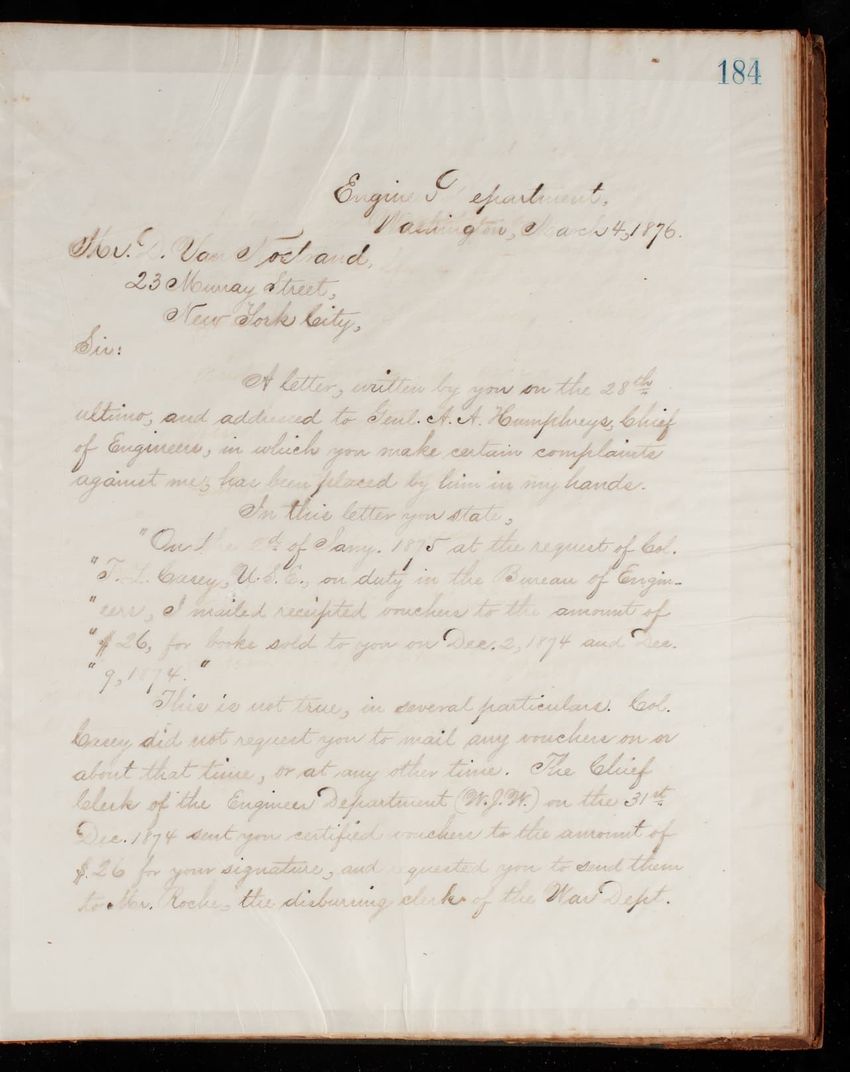 184
Engine Department,
Washington, March 4, 1876.
Mr. D. Van Nostrand,
23 Murray Street,
New York City,
Sir:
A letter, written by you on the 28th
ultimo, and addressed to Genl. A. A. Humphreys, Chief
of Engineers, in which you make certain complaints
against me, has been placed by him in my hands.
In this letter you state,
"On the of Jany. 1875 at the request of Col.
"T. L. Casey, U.S.E., on duty in the Bureau of Engin-
"eers, I mailed receipted vouchers to the amount of
"$26, for books sold to you on Dec. 2, 1874 and Dec.
"9, 1874."
This is not true, in several particulars. Col.
Casey did not request you to mail any vouchers on or
about that time, or at any other time. The Chief
Clerk of the Engineer Department (W.J.W.) on the 31st
Dec. 1874 sent you certified vouchers to the amount of
$.26 for your signature, and requested you to send them
to Mr. Roche, the disbursing clerk of the War Dept.